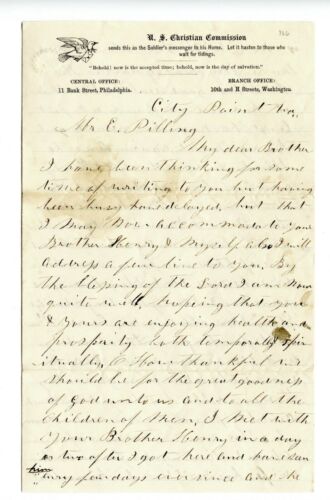 166
U. S. Christian Commission
sends this as the Soldier's messenger to his Home. Let it hasten to those who
wait for tidings.
"Behold! now is the accepted time; behold, now is the day of salvation."
CENTRAL OFFICE:
11 Bank Street, Philadelphia.
BRANCH OFFICE:
10th and H Streets, Washington
City Point Va,
Mr E. Pilling
My dear Brother
I have been thinking for some
time of writing to you but having
been busy have delayed, but that
I may now accommodate your
Brother Henry & Myself also I will
address a few line to you, By
the blessing of the Lord I am now
quite well, hopeing that you
& yours are enjoying health and
prosperity both temporally & spir-
itually, O How thankful we
should be for the great goodness
of God unto us and to all the
children of men, I Met with
Your Brother Henry in a day
or two after I got here and have seen
him every few days ever since and he